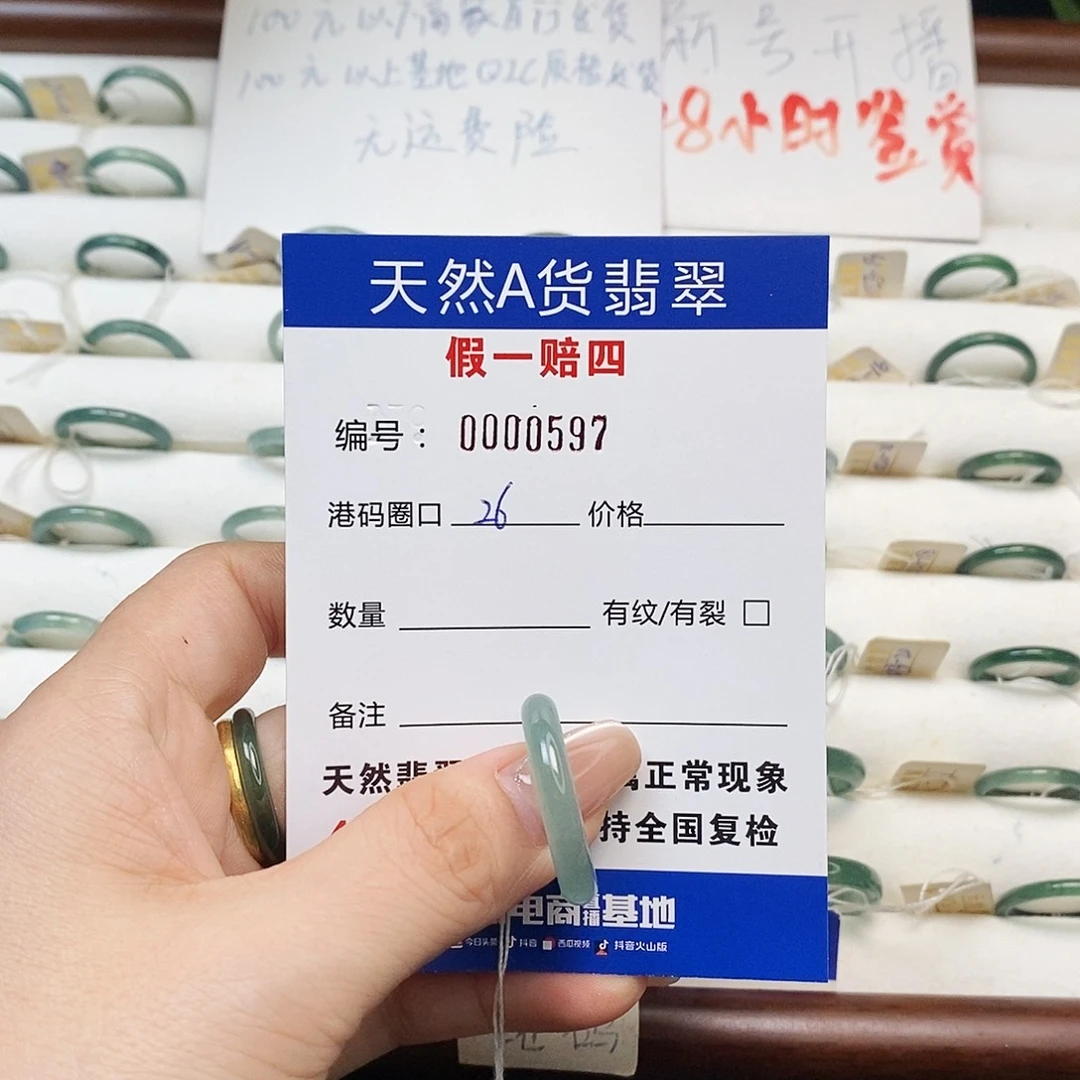 100元以下商家自行发货
100元以上基地QIC质检发货
无运费险
新号开播
48小时鉴赏
天然A货翡翠
假一赔四
编号：0000597
港码圈口 26 价格
数量 有纹/有裂 □
备注
天然翡 属正常现象
持全国复检
电商直播基地
今日头条 抖音 西瓜视频 抖音火山版